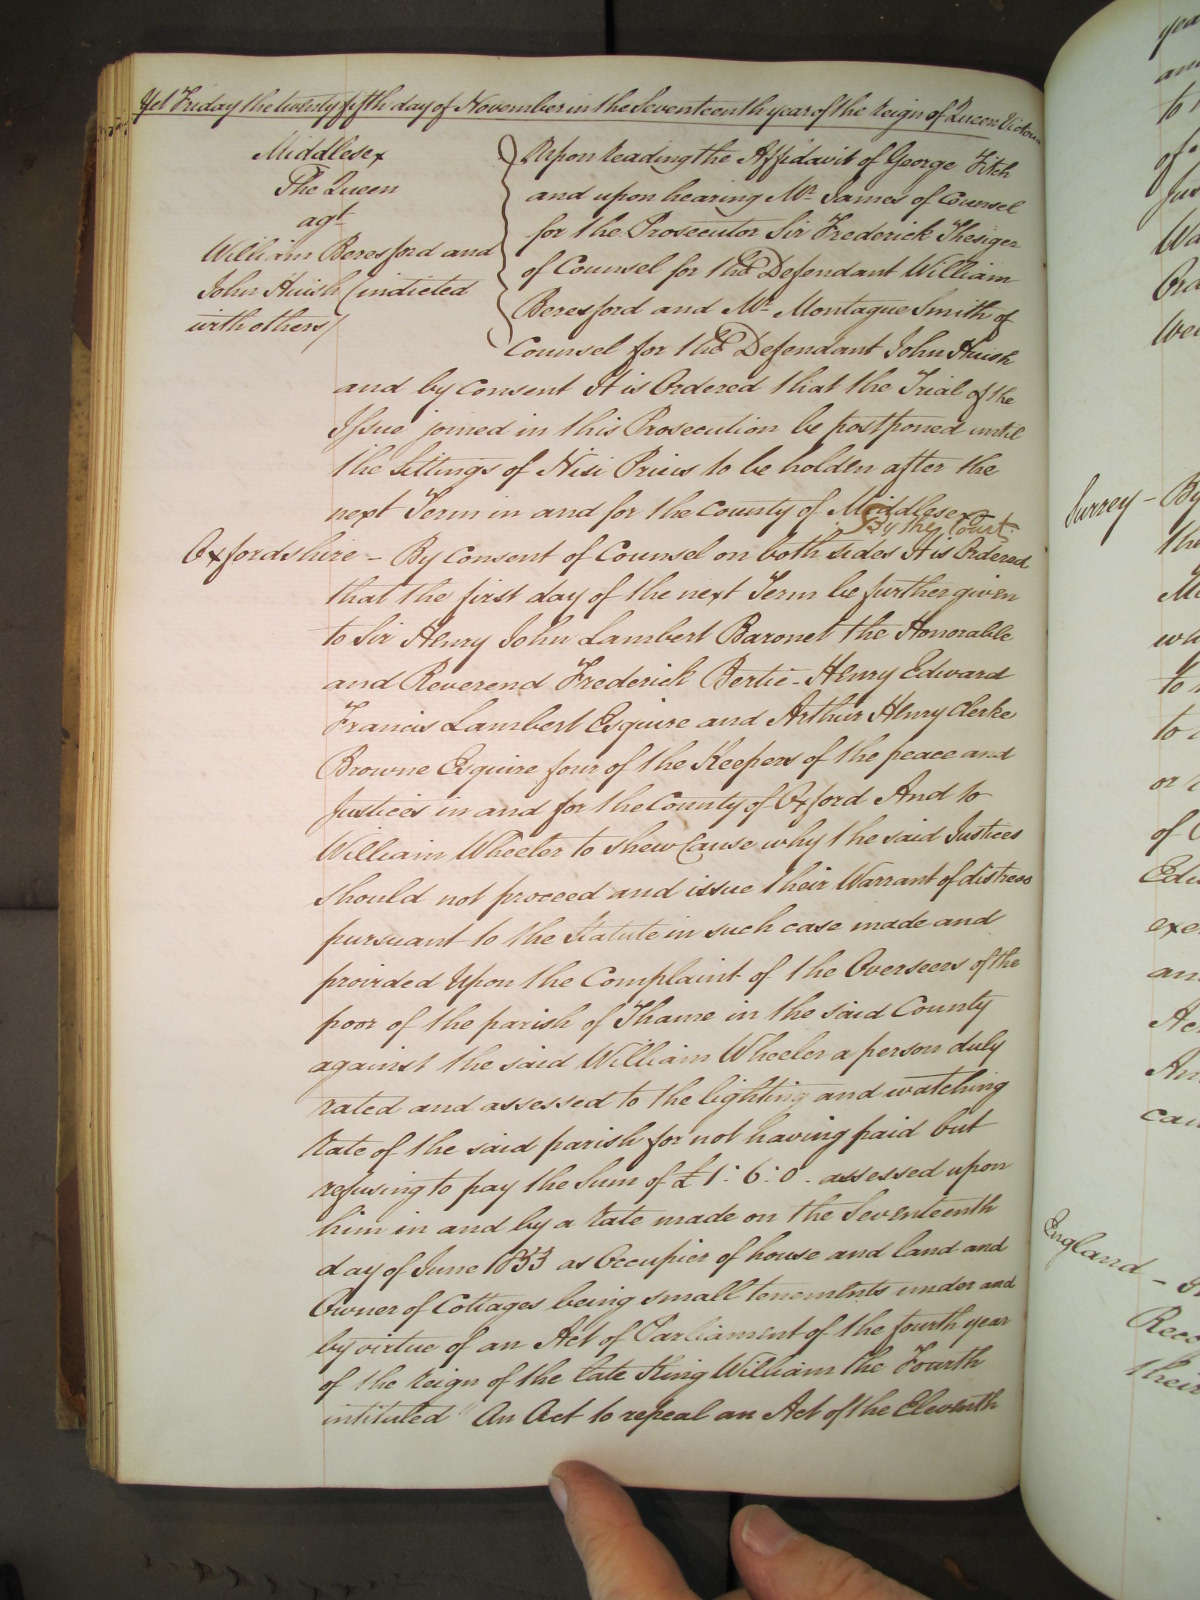 Yet Friday the twenty fifth day of November in the Seventeenth year of the reign of Queen Victoria
Middlesex
The Queen
agt
William Beresford and
John Huish (indicted
with others)
Upon reading the Affidavit of George Fitch
and upon hearing Mr. James of Counsel
for the Prosecutor Sir Frederick Thesiger
of Counsel for the Defendant William
Beresford and Mr. Montague Smith of
Counsel for the Defendant John Huish
and by consent It is Ordered that the Trial of the
Issue joined in this Prosecution be postponed until
the Sittings of Nisi Prius to be holden after the
next Term in and for the County of Middlesex
By the Court
Oxfordshire - By Consent of Counsel on both sides It is Ordered
that the first day of the next Term be further given
to Sir Henry John Lambert Baronet the Honorable
and Reverend Frederick Bertie - Henry Edward
Francis Lambert Esquire and Arthur Henry Clerke
Browne Esquire four of the Keepers of the peace and
Justices in and for the County of Oxford And to
William Wheeler to shew Cause why the said Justices
should not proceed and issue their Warrant of distress
pursuant to the Statute in such case made and
provided Upon the Complaint of the Overseers of the
poor of the parish of Thame in the said County
against the said William Wheeler a person duly
rated and assessed to the lighting and watching
Rate of the said parish for not having paid but
refusing to pay the Sum of £1:6:0. assessed upon
him in and by a rate made on the Seventeenth
day of June 1853 as Occupier of house and land and
Owner of Cottages being small tenements under and
by virtue of an Act of Parliament of the fourth year
of the reign of the late King William the Fourth
intituled "An Act to repeal an Act of the Eleventh
Surrey - By
the
England -
their